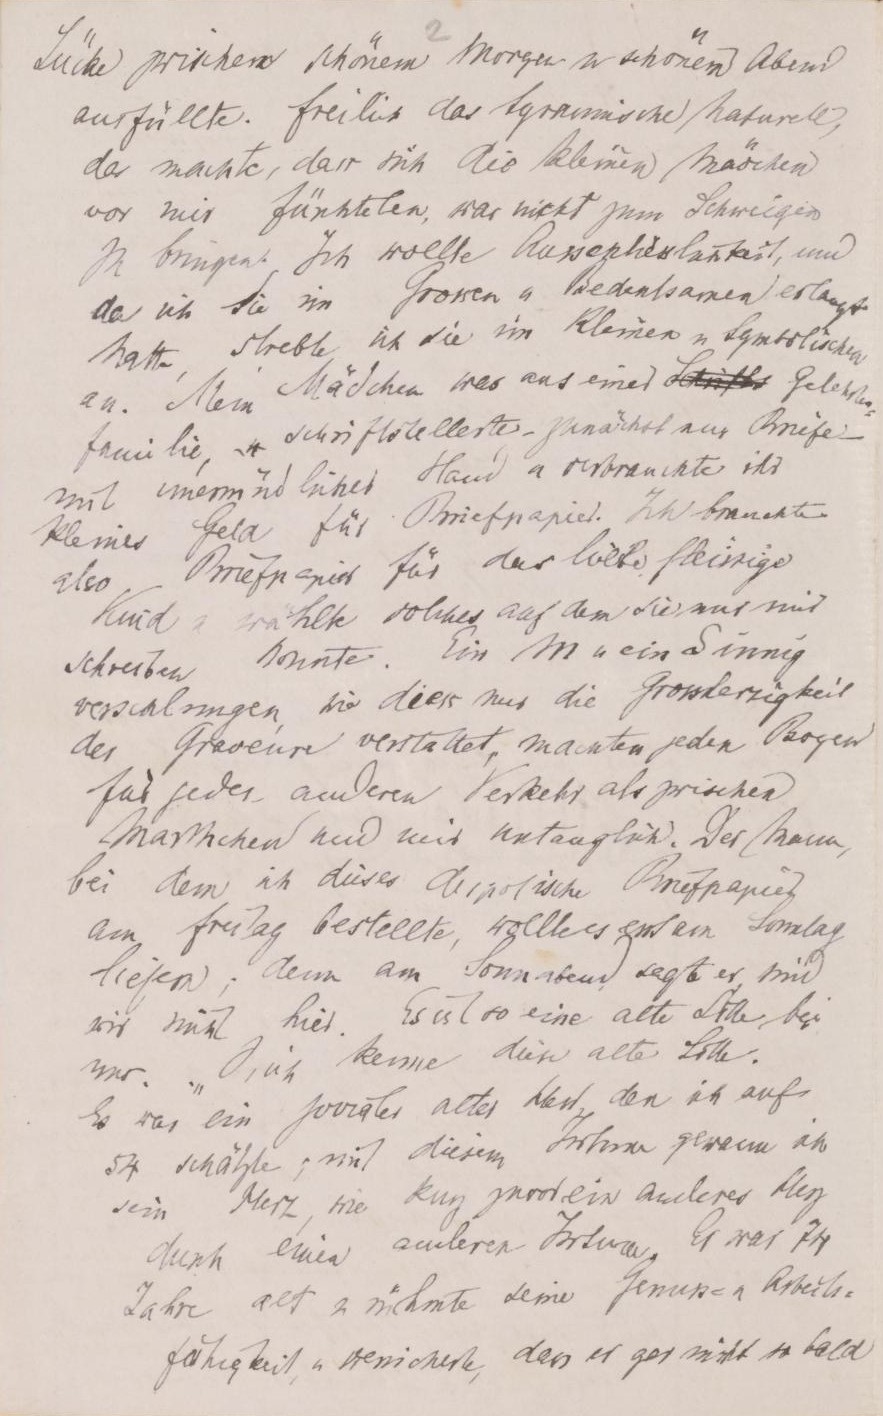 2
Lücke zwischen schönem Morgen u schönem Abend
ausfüllte. Freilich das tyrannische Naturell,
das machte, dass sich die kleinen Mädchen
vor mir fürchteten, war nicht zum Schweigen
zu bringen. Ich wollte Ausschliesslichkeit, und
da ich sie im Grossen u Bedeutsamen erlangt
hatte, strebte ich sie im Kleinen u Symbolischen
an. Mein Mädchen war aus einer Gelehrten=
familie, schriftstellerte – zunächst nur Briefe –
mit unermüdlicher Hand u verbrauchte ihr
kleines Geld für Briefpapier. Ich brauchte
also Briefpapier für das liebe, fleissige
Kind u wählte solches auf dem sie nur mir
schreiben konnte. Ein M u ein S innig
verschlungen, wie dies nur die Grossherzigkeit
der Graveure verstattet, machten jeden Bogen
für jeden anderen Verkehr als zwischen
und mir untauglich. Der Mann,
bei dem ich dieses despotische Briefpapier
am Freitag bestellte, wollte es erst am Sonntag
liefern; denn am Sonnabend, sagte er, sind
wir nicht hier. Es ist so eine alte Sitte bei
uns. „O, ich kenne diese alte Sitte.
Es war ein jovialer alter Herr, den ich auf
54 schätzte; mit diesem Irrtum gewann ich
sein Herz, wie kurz zuvor ein anderes Herz
durch einen anderen Irrtum. Er war 74
Jahre alt u rühmte seine Genuss= u Arbeits=
fähigkeit, u versicherte, dass er gar nicht so bald